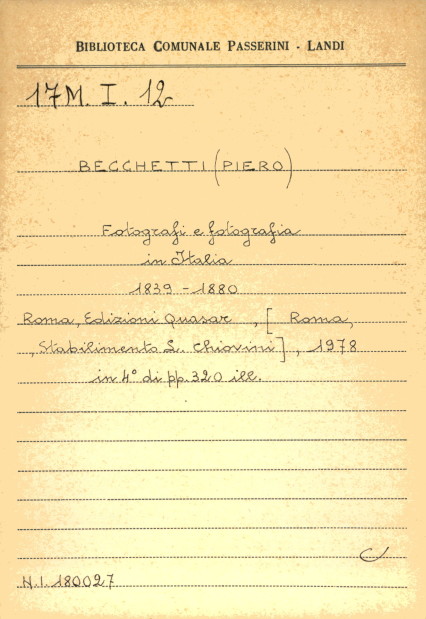 BIBLIOTECA COMUNALE PASSERINI - LANDI
17M. I. 12
BECCHETTI (PIERO)
Fotografi e fotografia
in Italia
1839 - 1880
Roma, Edizioni Quasar, [ Roma,
, Stabilimento L. Chiovini ] , 1978
in 4° di pp. 320 ill.
N.I. 180027